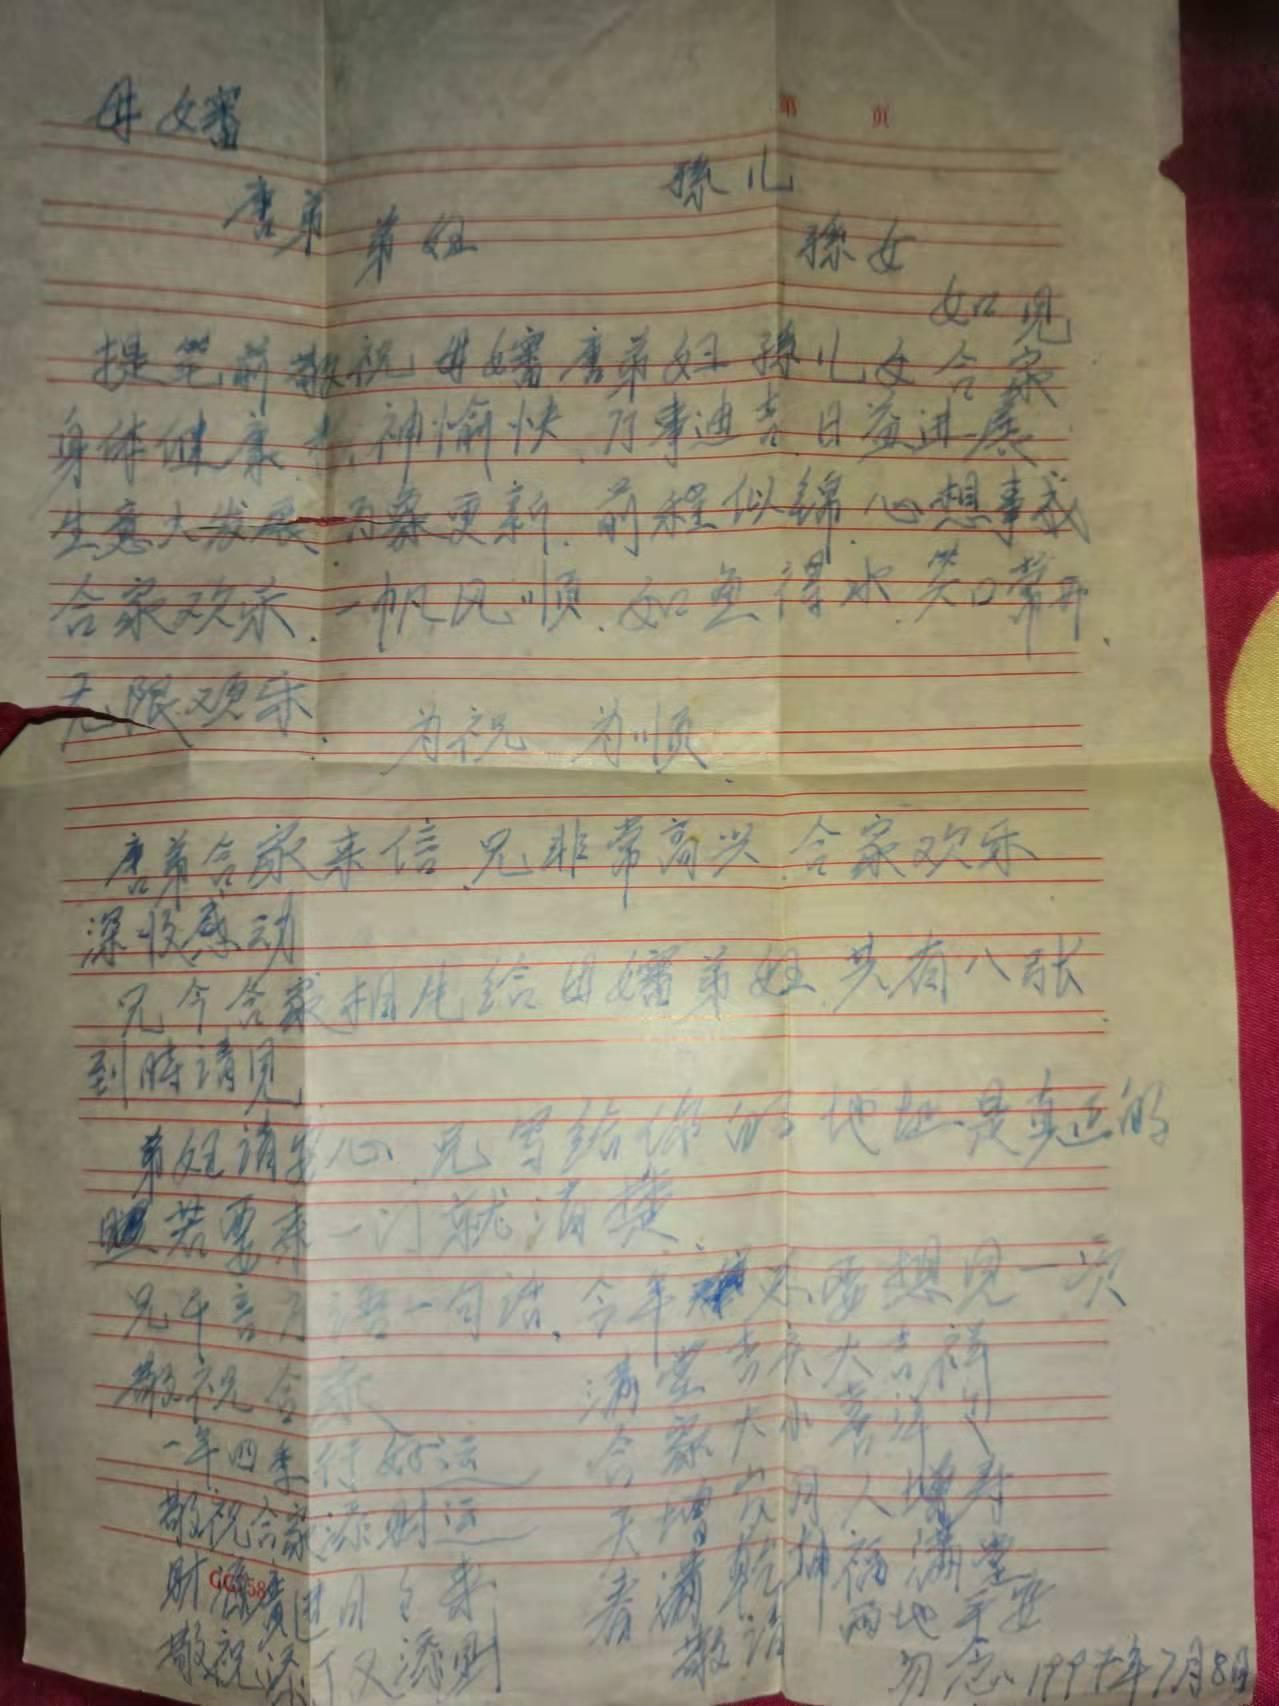 母女審
第 页
唐弟 孫儿
弟妞 孫女
如见
提笔前敬祝母嬸唐弟妞孫儿女合家
身体健康 神愉快 万事迪吉 日益进展
生意大发展 万象更新 前程似錦 心想事成
合家欢乐 一帆风順 如鱼得水 笑口常开
无限欢乐 为祝 为順
唐弟合家来信 兄非常高兴 合家欢乐
深收感动
兄今合家相片给母嬸弟妞 共有八张
到時请见
弟妞请安心 兄写给你的地址是真正的
若要来一门就清楚
兄千言万语一句话 今年 要想见一次
敬祝合家 满堂吉庆大吉祥
一年四季行好运 合家大小喜洋洋
敬祝合家添财运 天增岁月人增寿
财源廣进日日来 春满乾坤福满堂
敬祝添丁又添财 敬请 两地平安
勿念 1997年7月8日